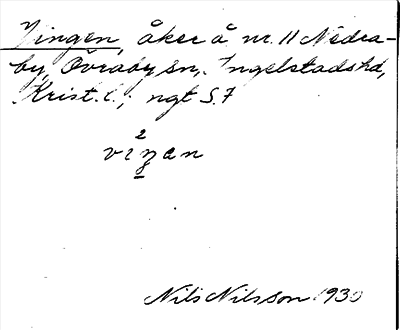 Vingen, åker å nr. 11 Nedra-
by, Övraby sn, Ingelstads hd,
Krist. l.; ngt S. 7
2
vıŋan
Nils Nilsson 1930